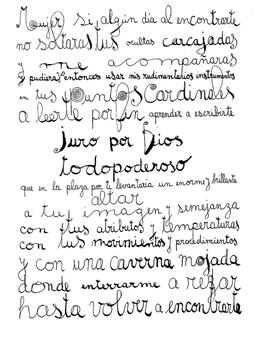 Mujer si algún día al encontrarte
no soltaras tus ocultas carcajadas
y me acompañaras
y pudiera entonces usar mis rudimentarios instrumentos
en tus Puntos Cardinales
a leerte por fin aprender a escribirte
juro por Dios
todopoderoso
que en la plaza por ti levantaria un enorme y brillante
altar
a tu imagen y semejanza
con tus atributos y temperaturas
con tus movimientos y procedimientos
y con una caverna mojada
donde enterrarme a rezar
hasta volver a encontrarte